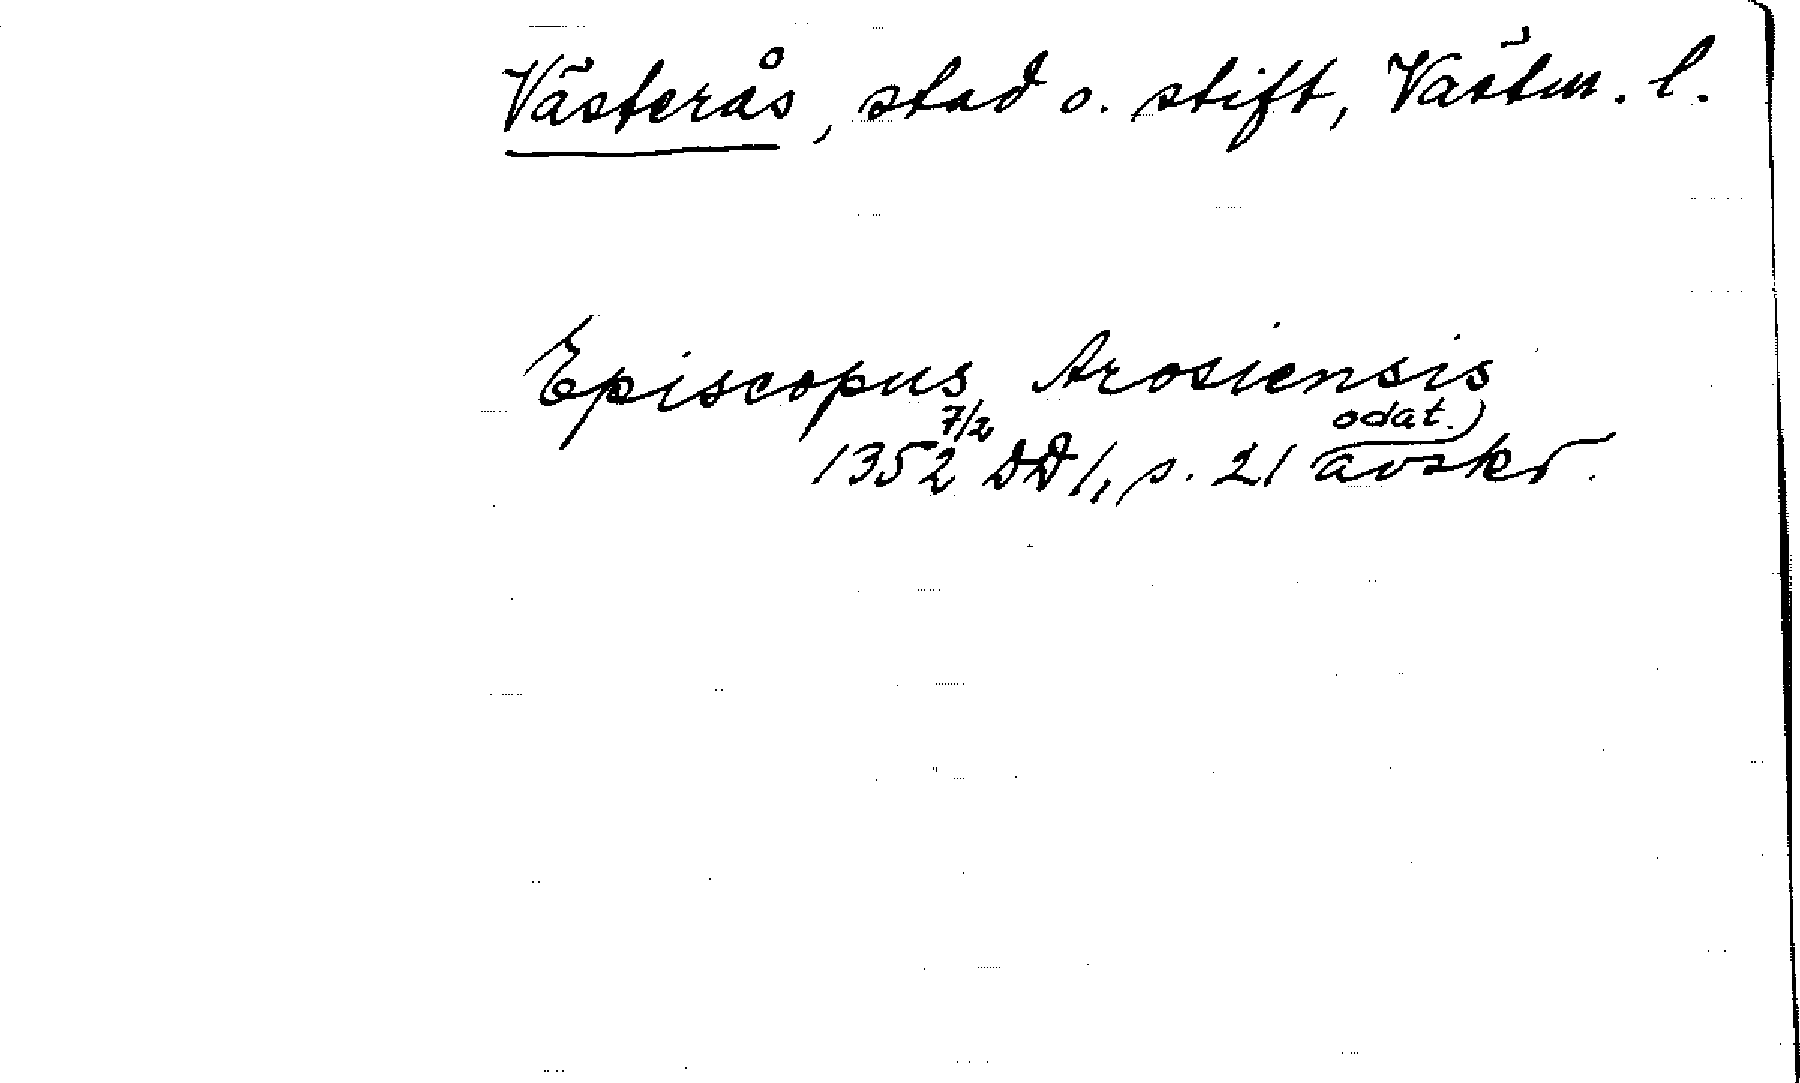 Västerås, stad o. stift, Västm. l.
Episcopus Arosiensis
1352 7/2 DD 1, s. 21 odat.) avskr.